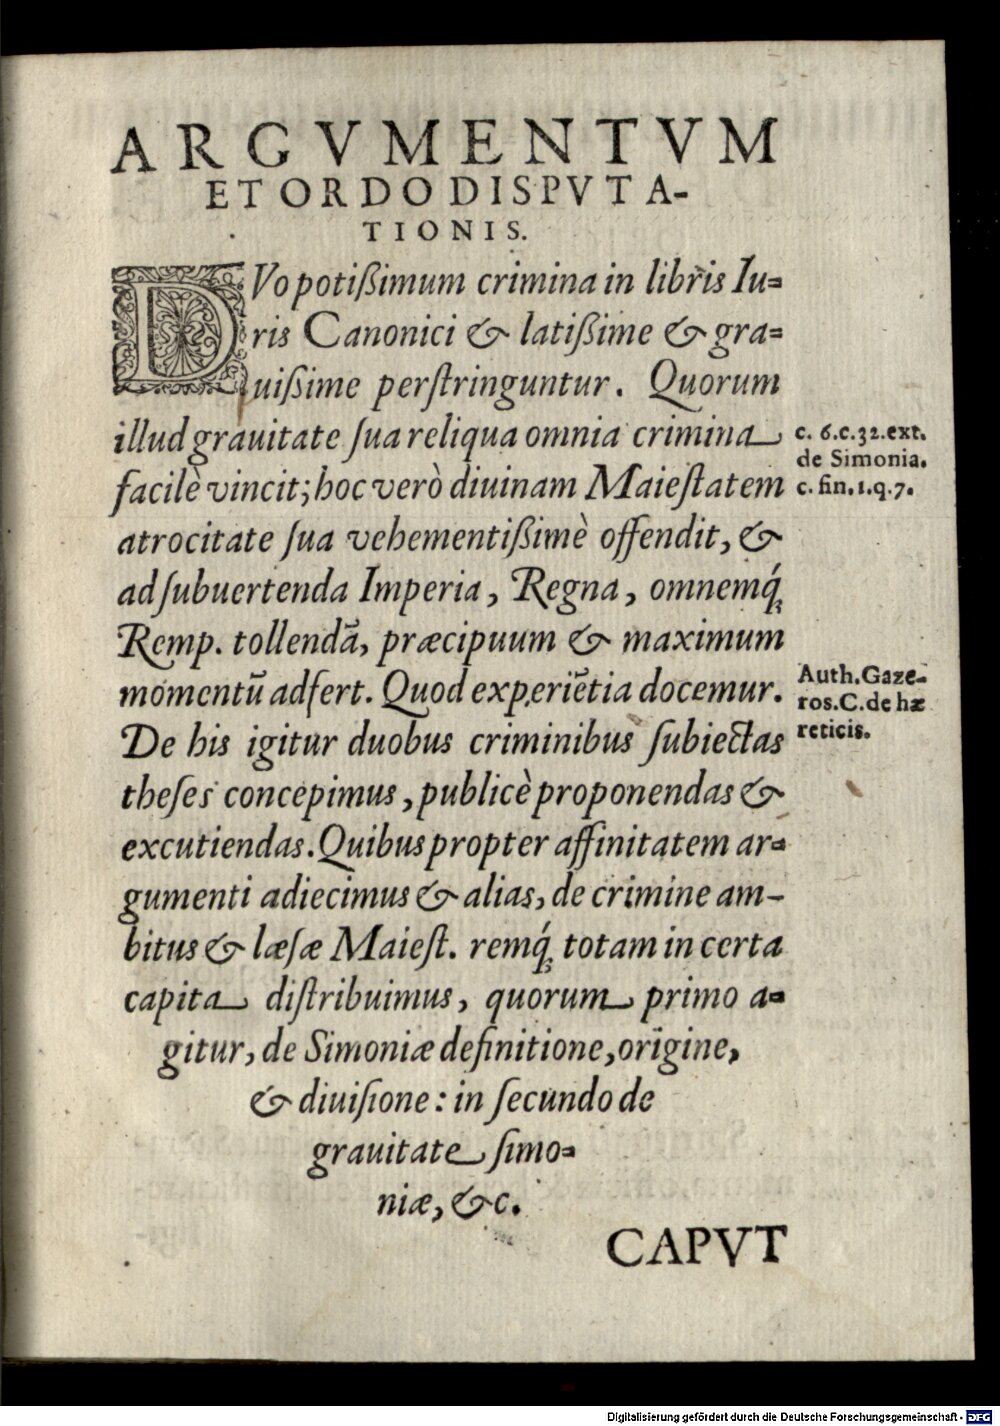 ARGVMENTVM
ET ORDO DISPVTA-
TIONIS.
DVo potißimum crimina in libris Iu-
ris Canonici & latißime & gra-
uißime perſtringuntur. Quorum
illud grauitate ſua reliqua omnia crimina
facilè vincit; hoc verò diuinam Maieſtatem
atrocitate ſua vehementißimè offendit, &
ad ſubuertenda Imperia, Regna, omnemq́;
Remp. tollendã, præcipuum & maximum
momentũ adfert. Quod experiẽtia docemur.
De his igitur duobus criminibus ſubiectas
theſes concepimus, publicè proponendas &
excutiendas. Quibus propter affinitatem ar-
gumenti adiecimus & alias, de crimine am-
bitus & læſæ Maieſt. remq́; totam in certa
capita diſtribuimus, quorum primo a-
gitur, de Simoniæ definitione, origine,
& diuiſione: in ſecundo de
grauitate ſimo-
niæ, &c.
CAPVT
c. 6. c. 32. ext.
de Simonia.
c. fin. 1. q. 7.
Auth. Gaze-
ros. C. de hæ
reticis.
Digitalisierung gefördert durch die Deutsche Forschungsgemeinschaft - DFG